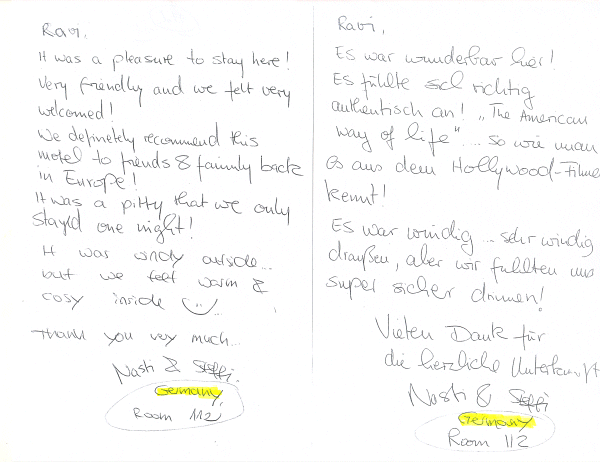 Ravi,
It was a pleasure to stay here!
Very friendly and we felt very
welcomed!
We definetely recommend this
motel to friends & family back
in Europe!
It was a pitty that we only
stayed one night!
It was windy outside...
but we felt warm &
cosy inside
Thank you very much...
Nasti & Steffi.
Germany,
Room 112
Ravi,
Es war wunderbar hier!
Es fühlte sich richtig
authentisch an! „The American
way of life" ... so wie man
es aus dem Hollywood-Filme
kennt!
Es war windig ... sehr windig
draußen, aber wir fühlten uns
super sicher drinnen!
Vielen Dank für
die herzliche Unterkunft
Nasti & Steffi
Germany
Room 112